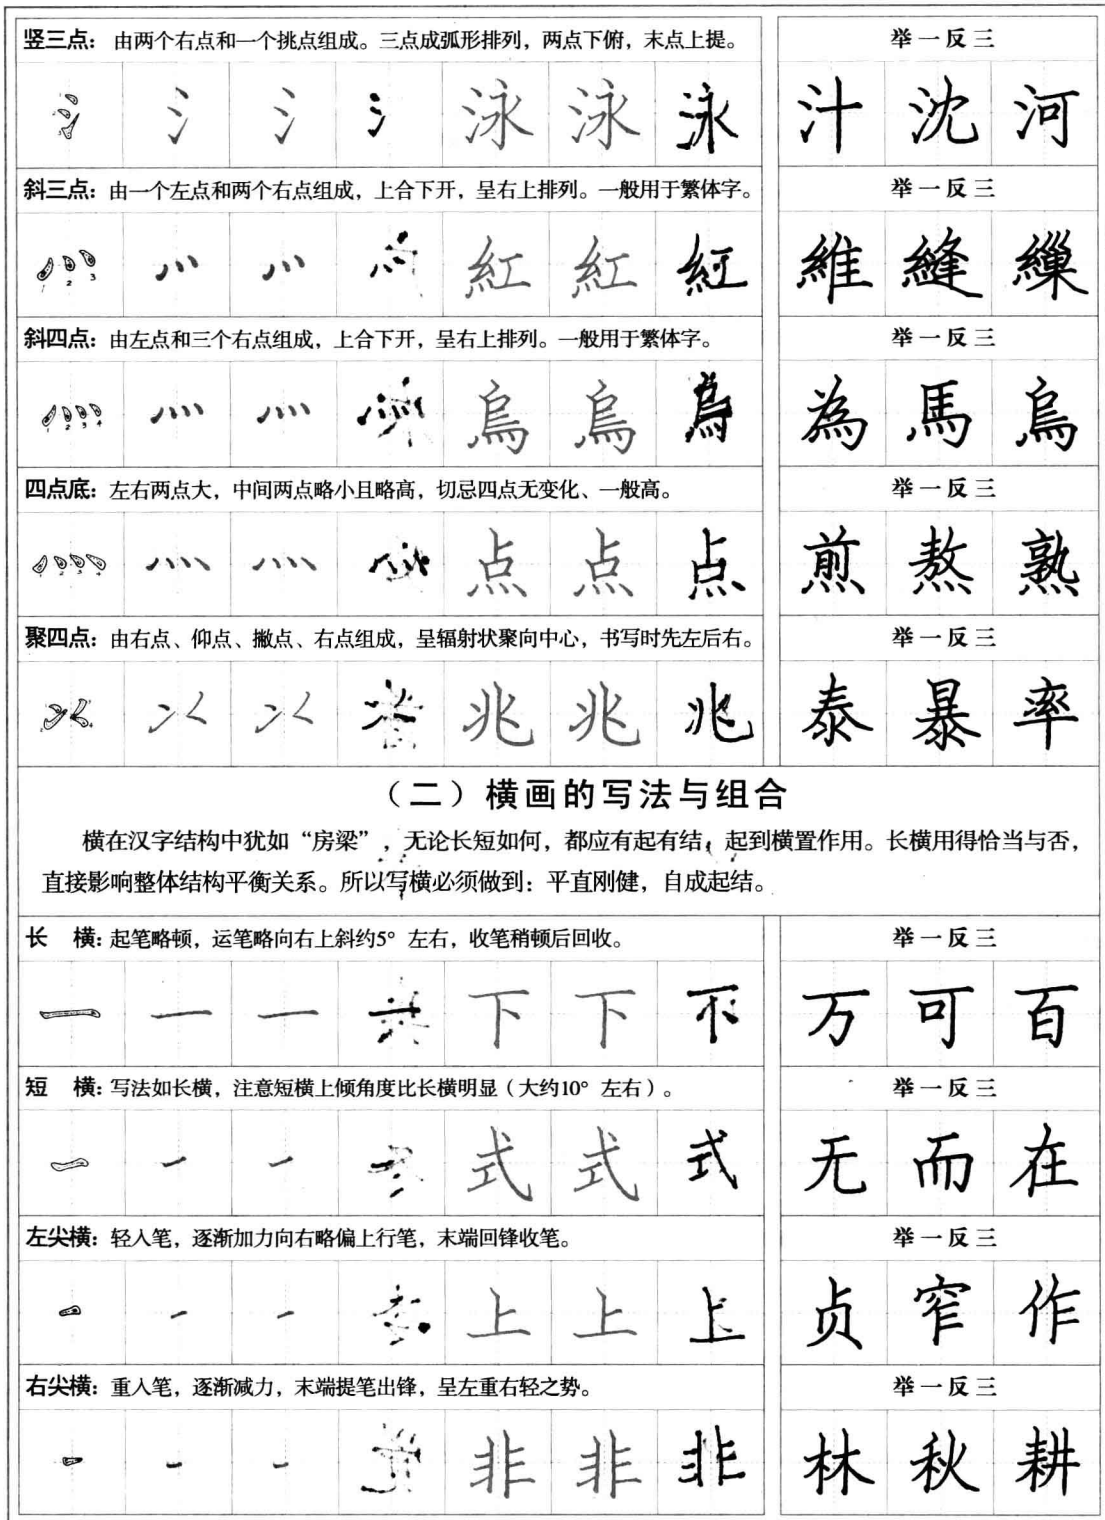 竖三点：由两个右点和一个挑点组成。三点成弧形排列，两点下俯，末点上提。
举一反三
氵 氵 氵 泳 泳 泳 汁 沈 河
斜三点：由一个左点和两个右点组成，上合下开，呈右上排列。一般用于繁体字。
举一反三
1 2 3 紅 紅 紅 維 縫 繅
斜四点：由左点和三个右点组成，上合下开，呈右上排列。一般用于繁体字。
举一反三
1 2 3 4 烏 烏 烏 為 馬 烏
四点底：左右两点大，中间两点略小且略高，切忌四点无变化、一般高。
举一反三
灬 灬 点 点 点 煎 熬 熟
聚四点：由右点、仰点、撇点、右点组成，呈辐射状聚向中心，书写时先左后右。
举一反三
兆 兆 兆 泰 暴 率
（二）横画的写法与组合
横在汉字结构中犹如“房梁”，无论长短如何，都应有起有结，起到横置作用。长横用得恰当与否，
直接影响整体结构平衡关系。所以写横必须做到：平直刚健，自成起结。
长　横：起笔略顿，运笔略向右上斜约5°左右，收笔稍顿后回收。
举一反三
一 一 一 下 下 下 万 可 百
短　横：写法如长横，注意短横上倾角度比长横明显（大约10°左右）。
举一反三
一 一 一 式 式 式 无 而 在
左尖横：轻入笔，逐渐加力向右略偏上行笔，末端回锋收笔。
举一反三
一 一 一 上 上 上 贞 窄 作
右尖横：重入笔，逐渐减力，末端提笔出锋，呈左重右轻之势。
举一反三
一 一 一 非 非 非 林 秋 耕